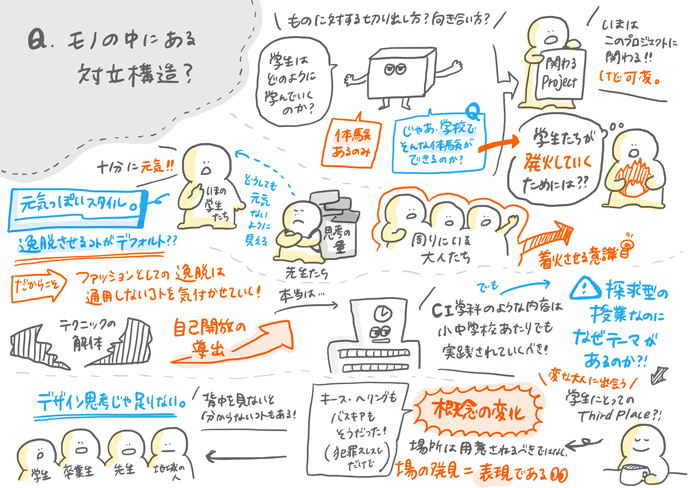 Q. モノの中にある
対立構造？
ものに対する切り出し方？向き合い方？
学生は
どのように
学んでいく
のか？
体験
あるのみ
Q
じゃあ、学校で
そんな体験が
できるのか？
関わる
Project
いまは
このプロジェクトに
関わる!!
けど可変。
学生たちが
発火していく
ためには??
十分に元気!!
いまの
学生
たち
元気っぽいスタイル。
逸脱させるコトがデフォルト??
どうしても
元気
ないように
見える
思考の
量
先生たち
周りにいる
大人たち
着火させる意識
だからこそ
ファッションとしての逸脱は
通用しないコトを気付かせていく!
テクニックの
解体
自己開放の
導出
本当は…
でも
CI学科のような内容は
小中学校あたりでも
実践されていくべき!
探求型の
授業なのに
なぜテーマが
あるのか?!
変な大人に出会う
学生にとっての
Third Place?!
デザイン思考じゃ足りない。
背中を見ないと
分からないコトもある!
学生
卒業生
先生
地域の
人
キース・ヘリングも
バスキアも
そうだった!
(犯罪スレスレ
だけど)
概念の変化
場所は用意されるべきではない。
場の発見＝表現である